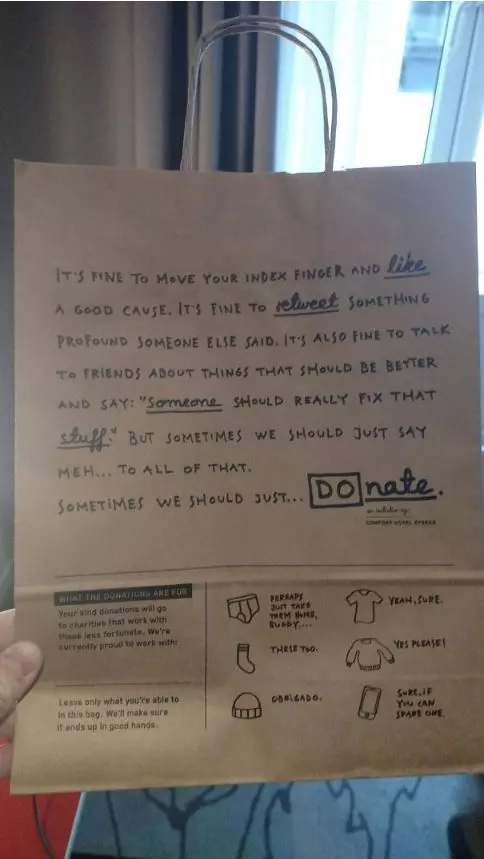 IT'S FINE TO MOVE YOUR INDEX FINGER AND like
A GOOD CAUSE. IT'S FINE TO retweet SOMETHING
PROFOUND SOMEONE ELSE SAID. IT'S ALSO FINE TO TALK
TO FRIENDS ABOUT THINGS THAT SHOULD BE BETTER
AND SAY: "someone SHOULD REALLY FIX THAT
stuff." BUT SOMETIMES WE SHOULD JUST SAY
MEH... TO ALL OF THAT.
SOMETIMES WE SHOULD JUST... DOnate.
an initiative by:
COMFORT HOTEL XPRESS
WHAT THE DONATIONS ARE FOR
Your kind donations will go
to charities that work with
those less fortunate. We're
currently proud to work with:
Leave only what you're able to
in this bag. We'll make sure
it ends up in good hands.
PERHAPS
JUST TAKE
THEM HOME,
BUDDY....
YEAH, SURE.
THESE TOO.
YES PLEASE!
OBRIGADO.
SURE, IF
YOU CAN
SPARE ONE.